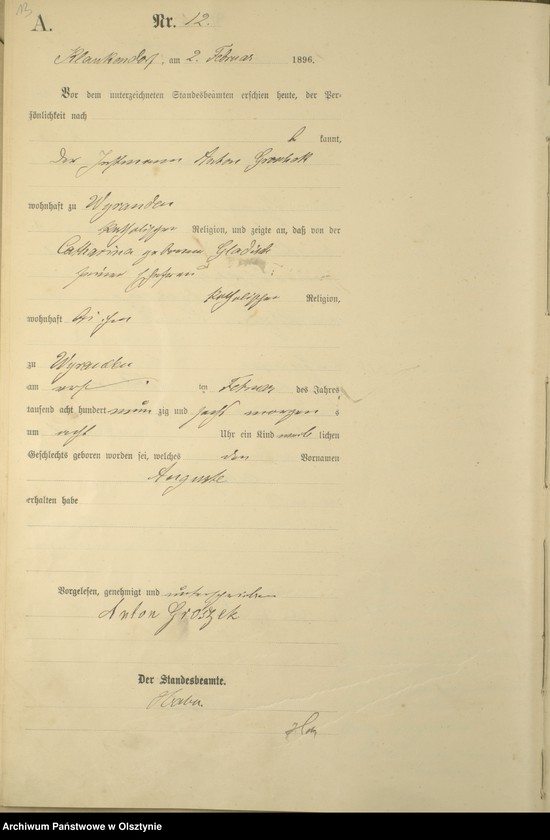 A. Nr. 12.
Klaukendorf, am 2. Februar 1896.
Vor dem unterzeichneten Standesbeamten erschien heute, der Per-
sönlichkeit nach
b kannt,
der Anton
wohnhaft zu Wyranden
katholischer Religion, und zeigte an, daß von der
Catharina geborene Gladisch
seiner Ehefrau
katholischer Religion,
wohnhaft bei ihm
zu Wyranden
am ten Februar des Jahres
tausend acht hundert neun zig und sechs morgens
um acht Uhr ein Kind weib lichen
Geschlechts geboren worden sei, welches den Vornamen
Auguste
erhalten habe
Vorgelesen, genehmigt und unterschrieben
Anton Groszek
Der Standesbeamte.
Archiwum Państwowe w Olsztynie